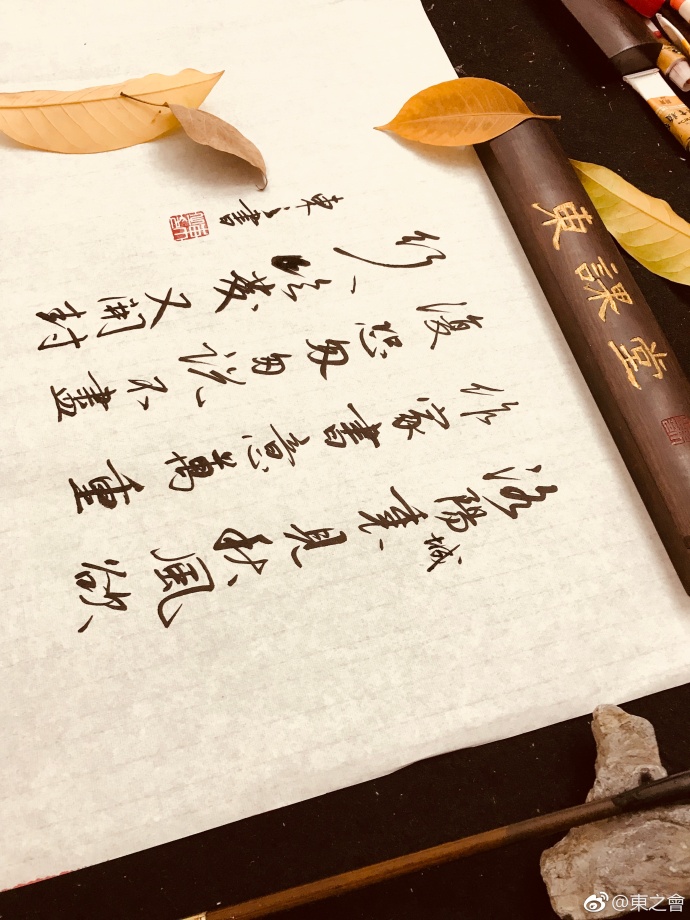 洛陽城裏見秋風欲
作家書意萬重
復恐匆匆說不盡
行人臨發又開封
東之書
東課堂
@東之會